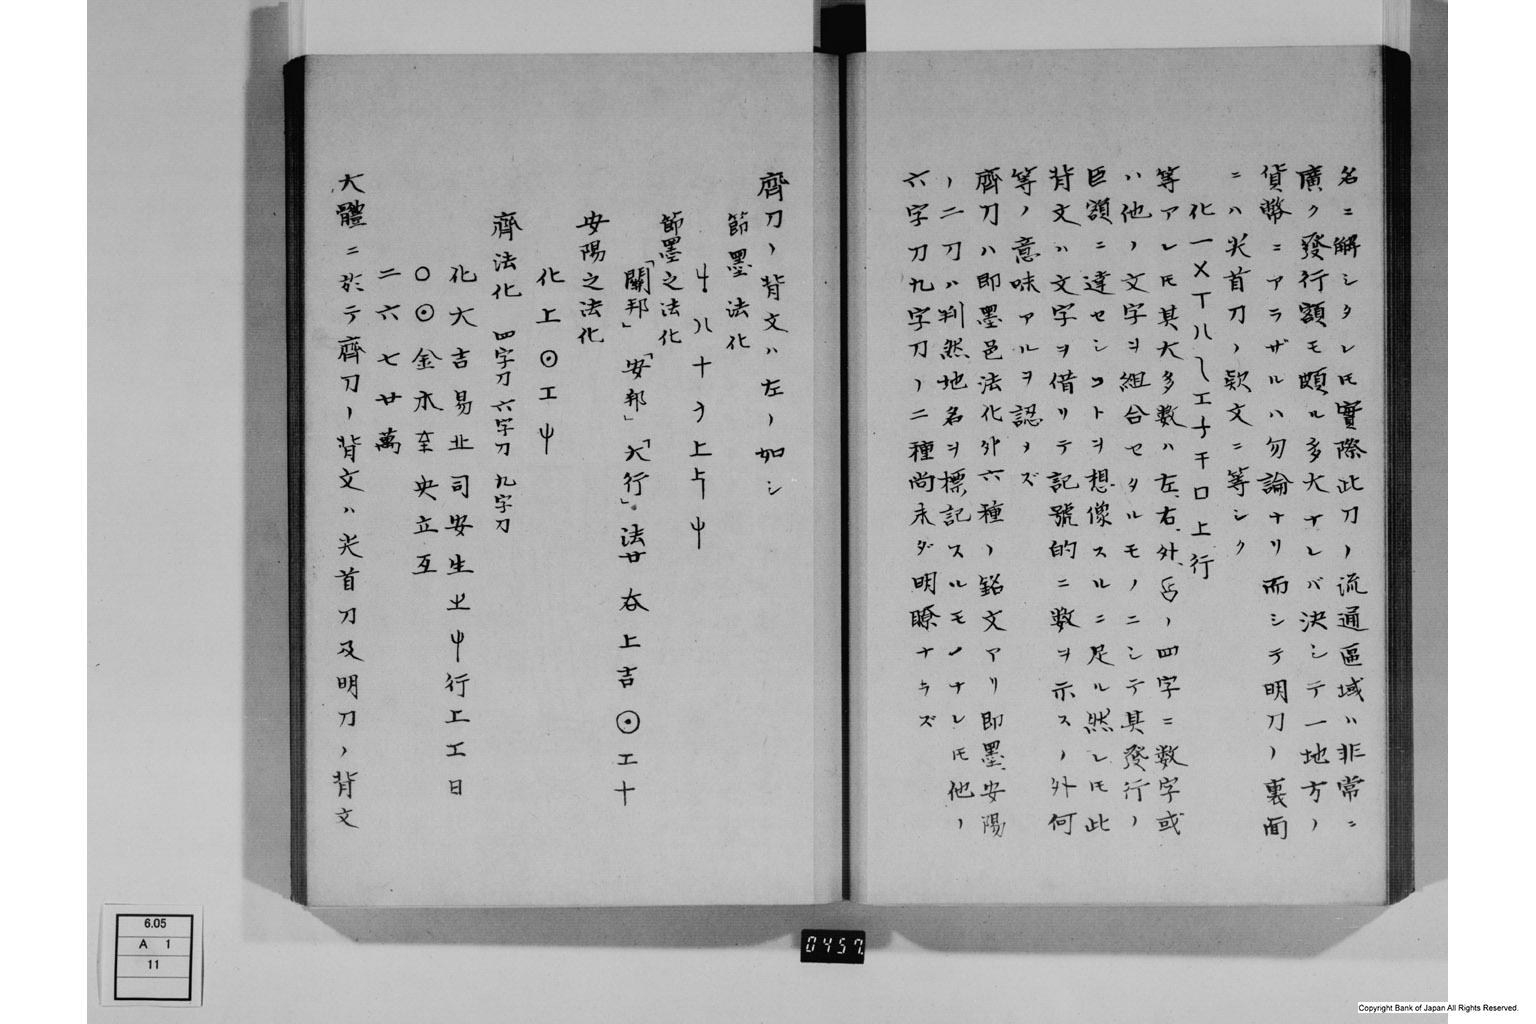 名ニ解シタレ𪜈實際此刀ノ流通區域ハ非常ニ
廣ク發行額モ頗ル多大ナレバ決シテ一地方ノ
貨幣ニアラザルハ勿論ナリ而シテ明刀ノ裏面
ニハ尖首刀ノ款文ニ等シク
化一X丅八乀工十干口上行
等アレ𪜈其大多數ハ左、右、外、ノ四字ニ数字或
ハ他ノ文字ヲ組合セタルモノニシテ其發行ノ
巨額ニ達セシヿトヲ想像スルニ足ル然レ𪜈此
背文ハ文字ヲ借リテ記號的ニ数ヲ示スノ外何
等ノ意味アルヲ認メズ
齊刀ハ即墨邑法化外六種ノ銘文アリ即墨、安陽
ノ二刀ハ判然地名ヲ標記スルモノナレ𪜈他ノ
六字刀九字刀ノ二種尚未ダ明瞭ナラズ
齊刀ノ背文ハ左ノ如シ
節墨法化
八十上
節墨之法化
「闢邦」「安邦」「大行」法廿 上吉⊙工十
安陽之法化
化上⊙工
齊法化 四字刀 六字刀 九字刀
化大吉易司安生行上工日
○⊙金木至央立
二六七廿萬
大體ニ於テ齊刀ノ背文ハ尖首刀及明刀ノ背文
6.05
A 1
11
0457
Copyright Bank of Japan All Rights Reserved.